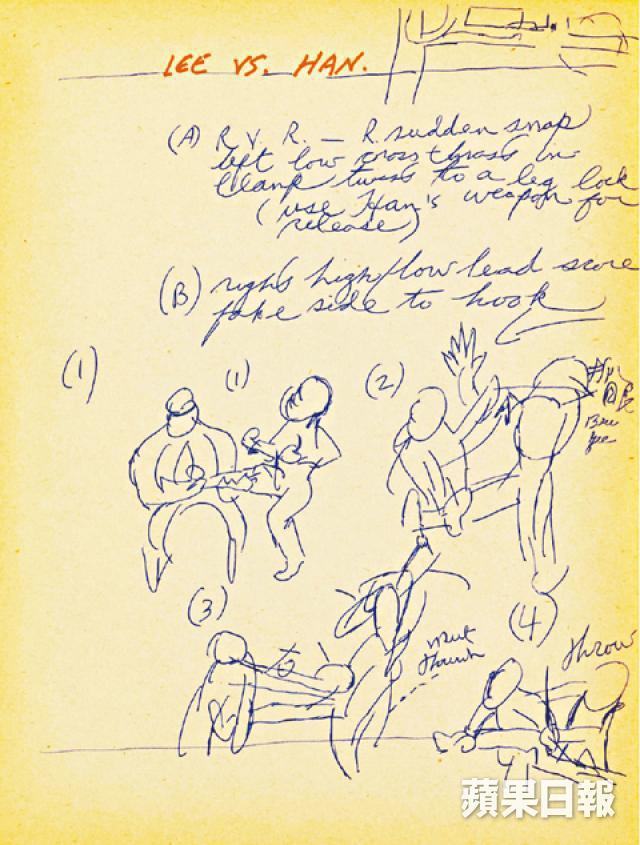 LEE VS. HAN.
(A) R V. R. — R. sudden snap
left low cross thrust in
clamp twist to a leg lock
(use Han's weapon for
release)
(B) right high/low lead score
fake side to hook
(1)
(1)
(2)
(3)
(4)
throw
蘋果日報